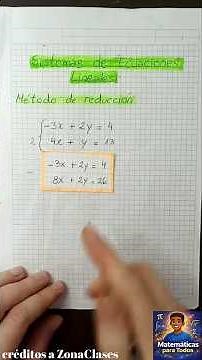 Sistemas de Ecuaciones
Lineales
Método de reducción
-3x + 2y = 4
2 4x + y = 13
- -3x + 2y = 4
8x + 2y = 26
créditos a ZonaClases
Matemáticas
para Todos